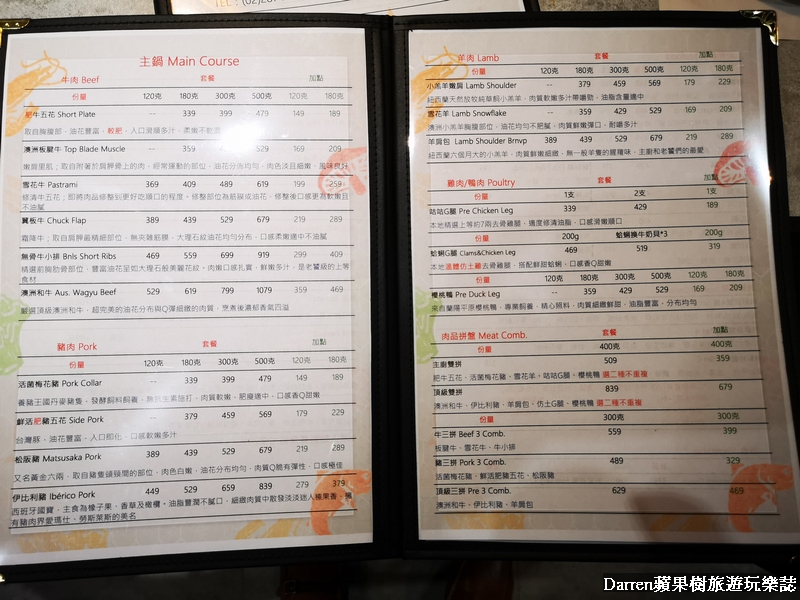 TEL：(02)28
主鍋 Main Course
牛肉 Beef 套餐 加點
份量 120克 180克 300克 500克 120克 180克
肥牛五花 Short Plate -- 339 399 479 149 189
取自胸腹部，油花豐富，較肥，入口滑順多汁，柔嫩不乾澀
澳洲板腱牛 Top Blade Muscle -- 359 429 529 169 209
嫩肩里肌；取自附著於肩胛骨上的肉，經常運動的部位，油花分布均勻，肉色淡且細嫩，風味良好
雪花牛 Pastrami 369 409 489 619 199 259
修清牛五花；即將肉品修整到更好吃順口的程度，修整部位為筋膜或油花，修整後口感更為軟嫩且
不油膩
翼板牛 Chuck Flap 389 439 529 679 219 289
霜降牛；取自肩胛最精細部位，無夾雜筋膜，大理石紋油花均勻分布，口感柔嫩適中不油膩
無骨牛小排 Bnls Short Ribs 469 559 699 919 299 409
精選前胸肋骨部位，豐富油花呈如大理石般美麗花紋。肉嫩口感扎實，鮮嫩多汁，是老饕級的上等
食材
澳洲和牛 Aus. Wagyu Beef 529 619 799 1079 359 469
嚴選頂級澳洲和牛，超完美的油花分布與Q彈細緻的肉質，烹煮後濃郁香氣四溢
豬肉 Pork 套餐 加點
份量 120克 180克 300克 500克 120克 180克
活菌梅花豬 Pork Collar -- 339 399 479 149 189
養豬王國丹麥豬隻，發酵飼料飼養，無抗生素施打，肉質軟嫩，肥瘦適中，口感Q甜嫩
鮮活肥豬五花 Side Pork -- 379 459 569 179 229
台灣豚，油花豐富，入口即化，口感軟嫩多汁
松阪豬 Matsusaka Pork 389 439 529 679 219 289
又名黃金六兩，取自豬隻頭頸間的部位，肉色白嫩，油花分布均勻，肉質Q脆有彈性，口感極佳
伊比利豬 Ibérico Pork 449 529 659 839 279 379
西班牙國寶，主食為橡子果、香草及橄欖。油脂豐潤不膩口，細緻肉質中散發淡淡迷人榛果香，擁
有豬肉界愛瑪仕、勞斯萊斯的美名
羊肉 Lamb 套餐 加點
份量 120克 180克 300克 500克 120克 180克
小羔羊嫩肩 Lamb Shoulder -- 379 459 569 179 229
紐西蘭天然放牧純草飼小羔羊，肉質軟嫩多汁帶嚼勁，油脂含量適中
雪花羊 Lamb Snowflake -- 359 429 529 169 209
澳洲小羔羊胸腹部位，油花均勻不肥膩，肉質鮮嫩彈口，耐嚼多汁
羊肩包 Lamb Shoulder Brnvp 389 439 529 679 219 289
紐西蘭六個月大的小羔羊，肉質鮮嫩細緻，無一般羊隻的腥羶味，主廚和老饕們的最愛
雞肉/鴨肉 Poultry 套餐 加點
份量 1支 2支 1支
咕咕G腿 Pre Chicken Leg 339 429 189
本地精選上等約7兩去骨雞腿，適度修清油脂，口感滑嫩順口
份量 200g 蛤蜊換牛奶貝*3 200g
蛤蜊G腿 Clams&Chicken Leg 469 519 319
本地溫體仿土雞去骨雞腿，搭配鮮甜蛤蜊，口感香Q甜嫩
份量 120克 180克 300克 500克 120克 180克
櫻桃鴨 Pre Duck Leg -- 359 429 529 169 209
來自蘭陽平原櫻桃鴨，專業飼養，精心照料，肉質細緻鮮甜，油脂豐富，分布均勻
肉品拼盤 Meat Comb. 套餐 加點
份量 400克 400克
主廚雙拼 509 359
肥牛五花、活菌梅花豬、雪花羊、咕咕G腿、櫻桃鴨 選二種不重複
頂級雙拼 839 679
澳洲和牛、伊比利豬、羊肩包、仿土G腿、櫻桃鴨 選二種不重複
份量 300克 300克
牛三拼 Beef 3 Comb. 559 399
板腱牛、雪花牛、牛小排
豬三拼 Pork 3 Comb. 489 329
活菌梅花豬、鮮活肥豬五花、松阪豬
頂級三拼 Pre 3 Comb. 629 469
澳洲和牛、伊比利豬、羊肩包
Darren蘋果樹旅遊玩樂誌